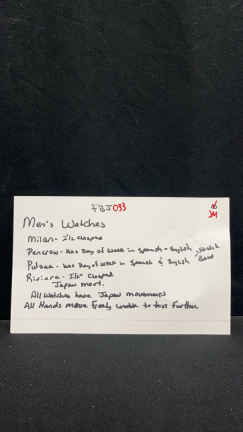 FBJ093
Men's Watches
Milan- It's Chopped
Pencron- Has Day of Week in Spanish + English, Switch
Pulsar - has Day of Week in Spanish & English Band
Riviera - It's Chopped
Japan mvmt.
All Watches have Japan movements
All Hands move Freely unable to test further